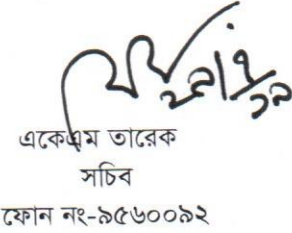 একেএম তারেক
সচিব
ফোন নং-৯৫৬০০৯২